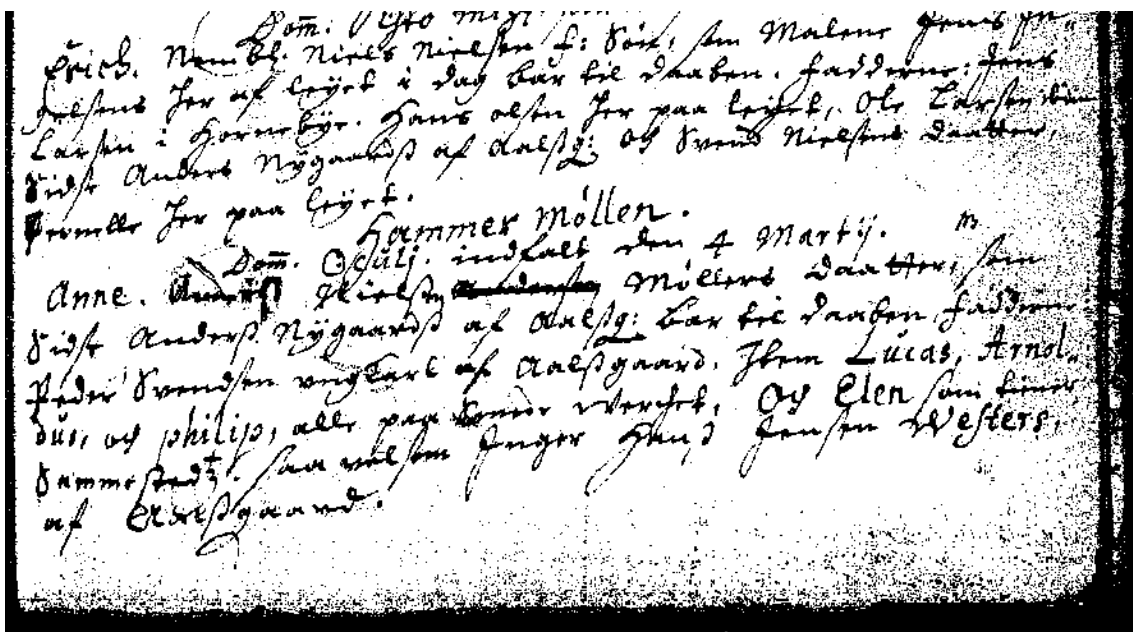 Dom̄: Esto mihi
Erich. Nembl. Niels Nielsen f: Søn, som Malene Jens In-
gelsens her af leyet i dag bar til daaben. fadderne: Jens
Larsen i Hornebye. Hans olsen her paa leyet, Ole Larsen
Sidse Anders Nygaardß af Aalßg: Og Svend Nielsens daatter,
Pernelle her paa leyet.
Hammer Møllen.
Dom̄. Oculj. indfalt den 4 Martij.
Anne. Nielsen Møllers daatter, som
Sidse Anderß Nÿgaardß af Aalßg: bar til daaben, faddern
Peder Svendsen ungkarl af Aalßgaard, Item Lucas, Arnol-
dus, og philip, alle paa Werchet, Og Elen som tiener
Sammestedz. saa velsom Inger Hanß Jensen Westers,
af Aalßgaard.